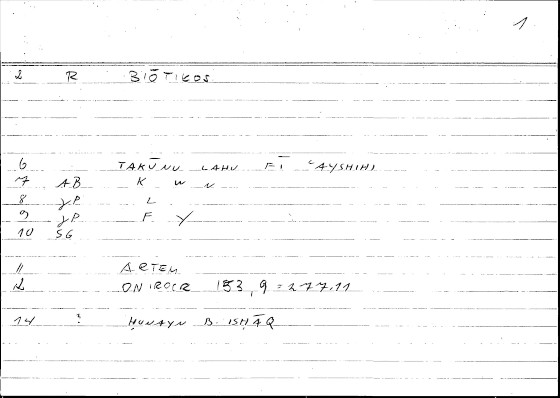 1
2 R BIŌTIKOS
6 TAKŪNU LAHU FĪ ʿAYSHIHI
7 AB K W N
8 γP L
9 γP F Y
10 SG
11 ARTEM
2 ONIROCR 153, 9 = 277.11
14 ? ḤUNAYN B. ISḤĀQ